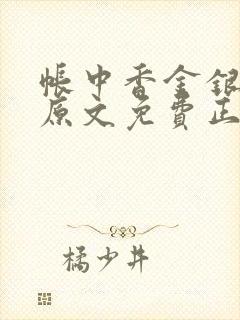 帐中香金银
原文免費正
橘少井